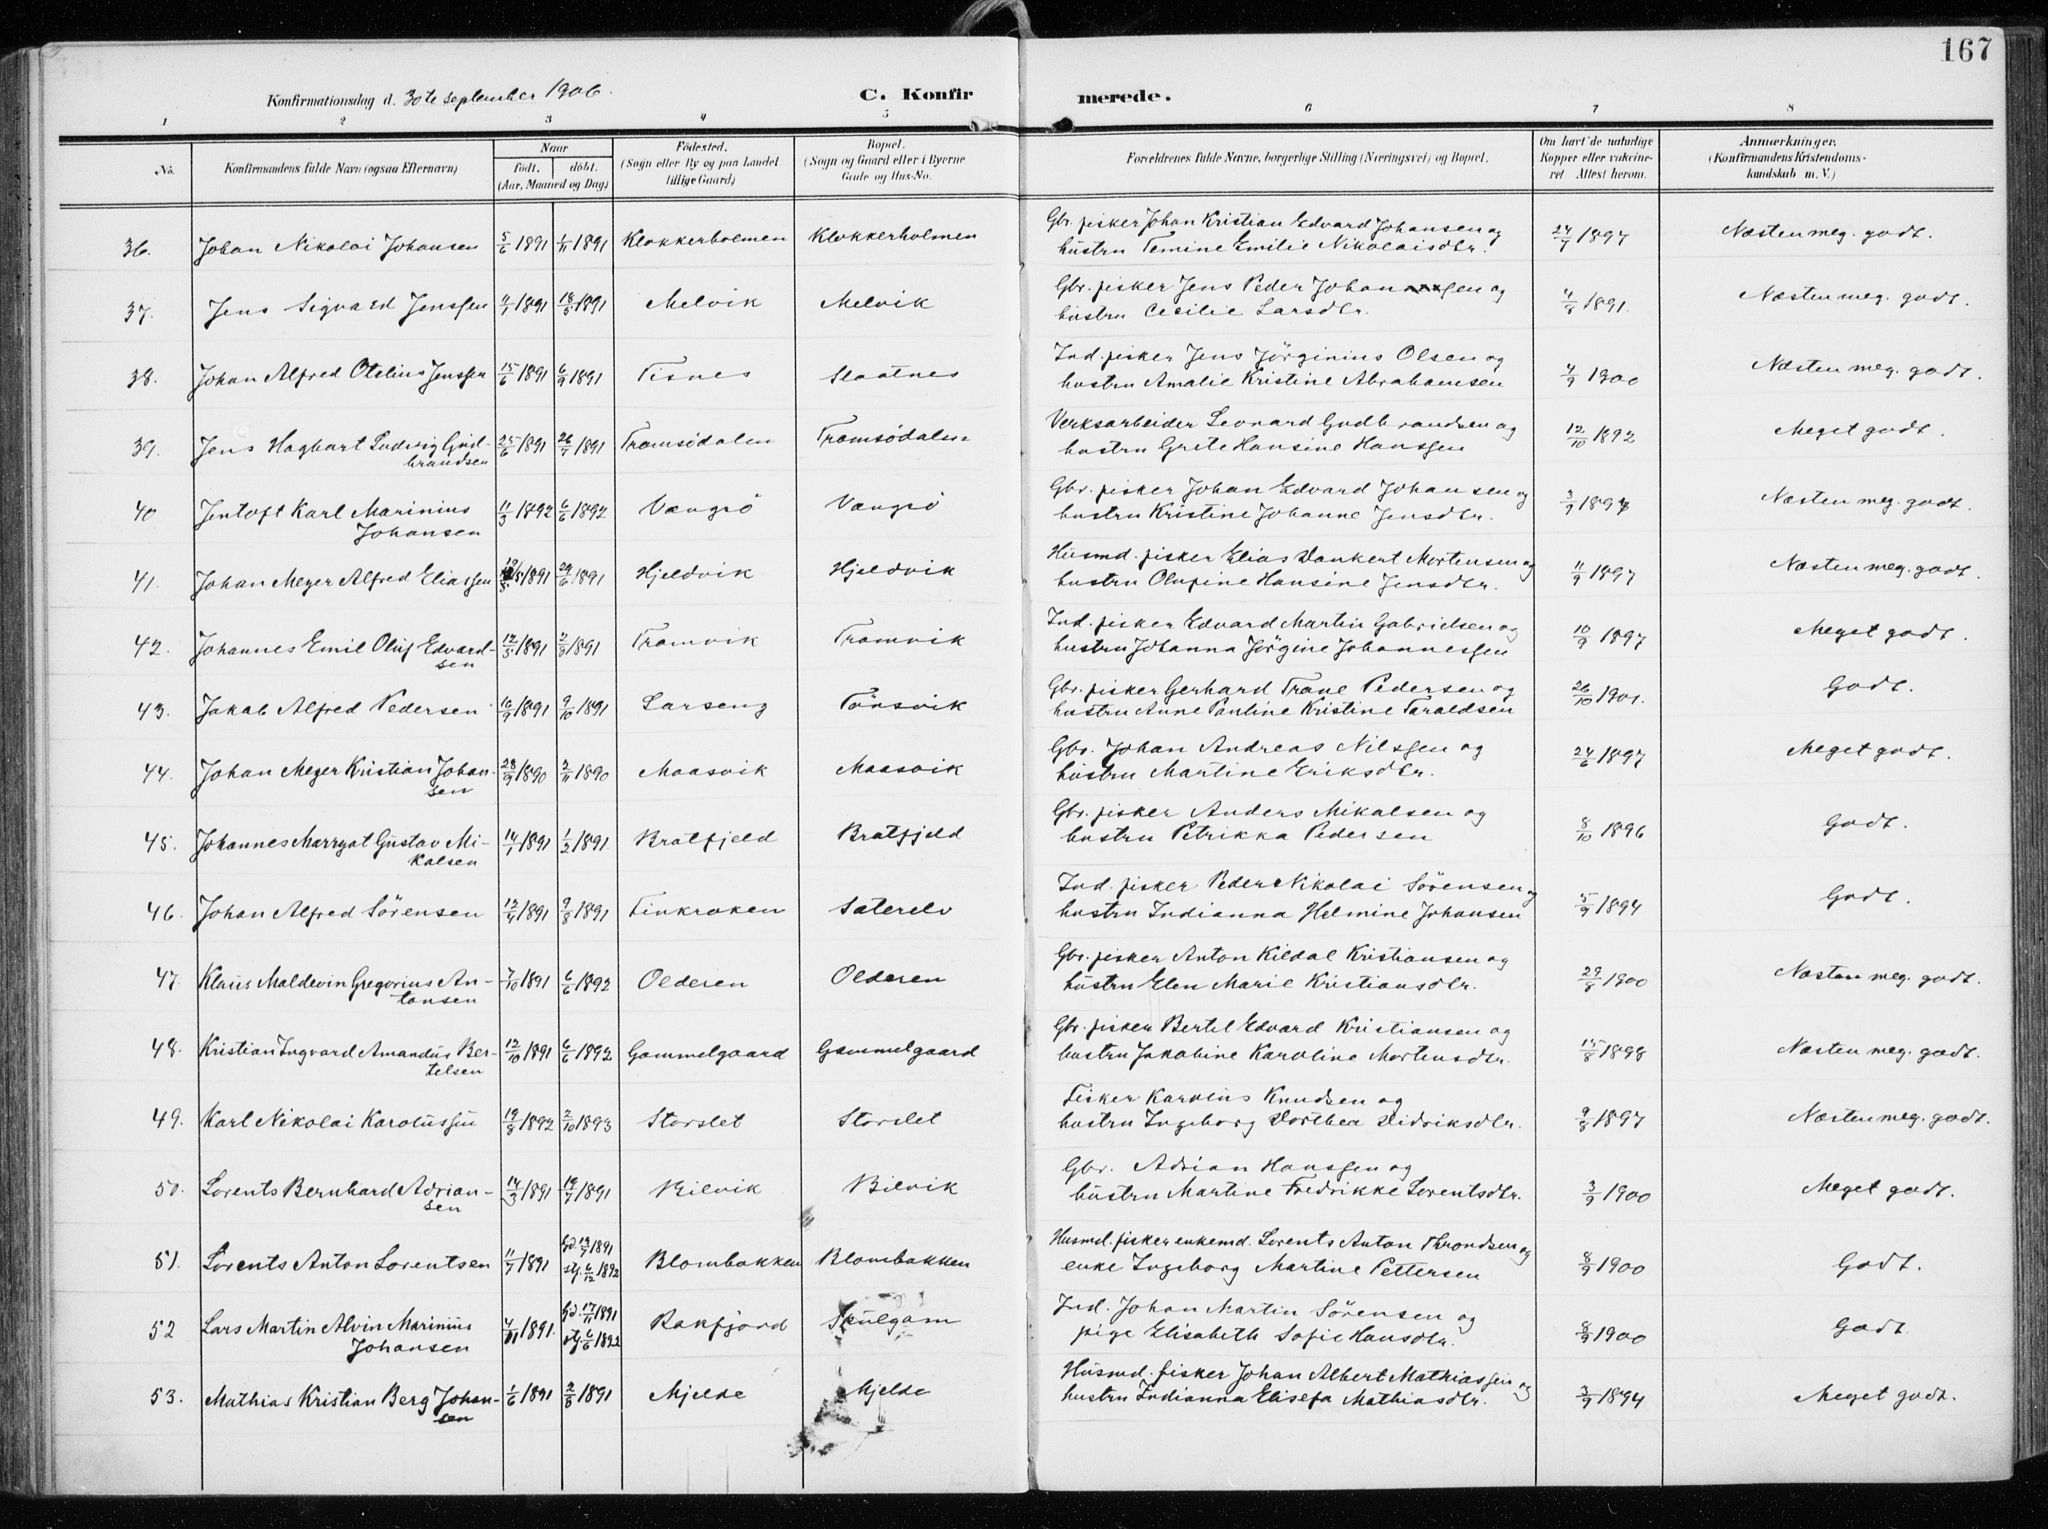 167
Konfirmationsdag d. 30te september 1906.
C. Konfirmerede.
1 2 3 4 5 6 7 8
No. Konfirmandens fulde Navn (ogsaa Efternavn) Naar født. døbt. (Aar, Maaned og Dag) Fødested. (Sogn eller By og paa Landet tillige Gaard) Bopæl. (Sogn og Gaard eller i Byerne Gade og Hus-No. Forældrenes fulde Navne, borgerlige Stilling (Næringsvei) og Bopæl. Om havt de naturlige Kopper eller vakcineret Attest herom. Anmærkninger, (Konfirmandens Kristendomskundskab m. V.)
36. Johan Nikolai Johansen 5/6 1891 1/11 1891 Klokkerholmen Klokkerholmen Gbr. fisker Johan Kristian Edvard Johansen og
hustru Temine Emilie Nikolaisdtr. 1897 Næsten meg. godt.
37. Jens Sigvard Jenssen 1891 18/5 1891 Melvik Melvik Gbr. fisker Jens Peder Johanssen og
hustru Cecilie Larsdtr. 1891. Næsten meg. godt.
38. Johan Alfred Otelius Jenssen 15/6 1891 6/9 1891 Tisnes Slaatnes Ind. fisker Jens Jörginius Olsen og
hustru Amalie Kristine Abrahamsen 4/9 1900 Næsten meg. godt.
39. Jens Hagbart Ludvig Gud-
brandsen 25/6 1891 26/7 1891 Tromsödalen Tromsödalen Verksarbeider Leonard Gudbrandsen og
hustru Grete Hansine Hanssen 12/10 1892 Meget godt.
40 Jentoft Karl Marinius
Johansen 11/3 1892 6/6 1892 Vængsö Vængsö Gbr. fisker Johan Edvard Johansen og
hustru Kristine Johanne Jensdtr. 3/9 1897 Næsten meg. godt.
41. Johan Meyer Alfred Eliassen 1891 29/6 1891 Hjeldvik Hjeldvik Husmd. fisker Elias Dankert Mortensen og
hustru Olufine Hansine Jensdtr. 11/9 1897 Næsten meg. godt.
42. Johannes Emil Oluf Edvard-
sen 12/5 1891 2/8 1891 Tromvik Tromvik Ind. fisker Edvard Martin Gabrielsen og
hustru Johanna Jörgine Johannessen 10/9 1897 Meget godt.
43. Jakob Alfred Pedersen 16/9 1891 9/10 1891 Larseng Tönsvik Gbr. fisker Gerhard Trane Pedersen og
hustru Anne Pauline Kristine Taraldsen 26/10 1901. Godt.
44. Johan Meyer Kristian Johan-
sen 28/9 1890 2/11 1890 Maasvik Maasvik Gbr. Johan Andreas Nilssen og
hustru Martine Eriksdtr. 24/6 1897 Meget godt.
45. Johannes Marryat Gustav Mi-
kalsen 14/1 1891 1/2 1891 Bratfjeld Bratfjeld Gbr. fisker Anders Mikalsen og
hustru Petrikka Pedersen 8/10 1896 Godt.
46. Johan Alfred Sörensen 12/4 1891 9/8 1891 Finkroken Sæterelv Ind. fisker Peder Nikolai Sörensen og
hustru Indianna Helmine Johansen 5/9 1894 Godt.
47. Klaus Maldevin Gregorius An-
tonsen 7/10 1891 6/6 1892 Olderen Olderen Gbr. fisker Anton Kildal Kristiansen og
hustru Elen Marie Kristiansdtr. 29/8 1900 Næsten meg. godt.
48. Kristian Ingvard Amandus Ber-
telsen 12/10 1891 6/6 1892 Gammelgaard Gammelgaard Gbr. fisker Bertel Edvard Kristiansen og
hustru Jakobine Karoline Mortensdtr. 15/8 1898 Næsten meg. godt.
49. Karl Nikolai Karolussen 19/8 1892 2/10 1893 Storslet Storslet Fisker Karolus Knudsen og
hustru Ingeborg Dorthea Didriksdtr. 9/8 1897 Næsten meg. godt.
50. Lorents Bernhard Adrian-
sen 14/3 1891 19/7 1891 Bilvik Bilvik Gbr. Adrian Hanssen og
hustru Martine Fredrikke Lorentsdtr. 3/9 1900 Meget godt.
51. Lorents Anton Lorentsen 11/7 1891 hjd. 13/7 1891
stf. 6/12 1892 Blombakken Blombakken Husmd. fisker enkemd. Lorents Anton Throndsen og
enke Ingeborg Martine Pettersen 8/9 1900 Godt.
52 Lars Martin Alvin Marinius
Johansen 4/11 1891. hjd. 17/11 1891
stf. 6/6 1892 Bakfjord Skulgam Ind. Johan Martin Sörensen og
pige Elisabeth Sofie Hansdtr. 8/9 1900 Godt.
53. Mathias Kristian Berg Johan-
sen 1/6 1891 2/8 1891 Mjelde Mjelde Husmd. fisker Johan Albert Mathiassen og
hustru Indianna Elisefa Mathiasdtr. 3/9 1894 Meget godt.